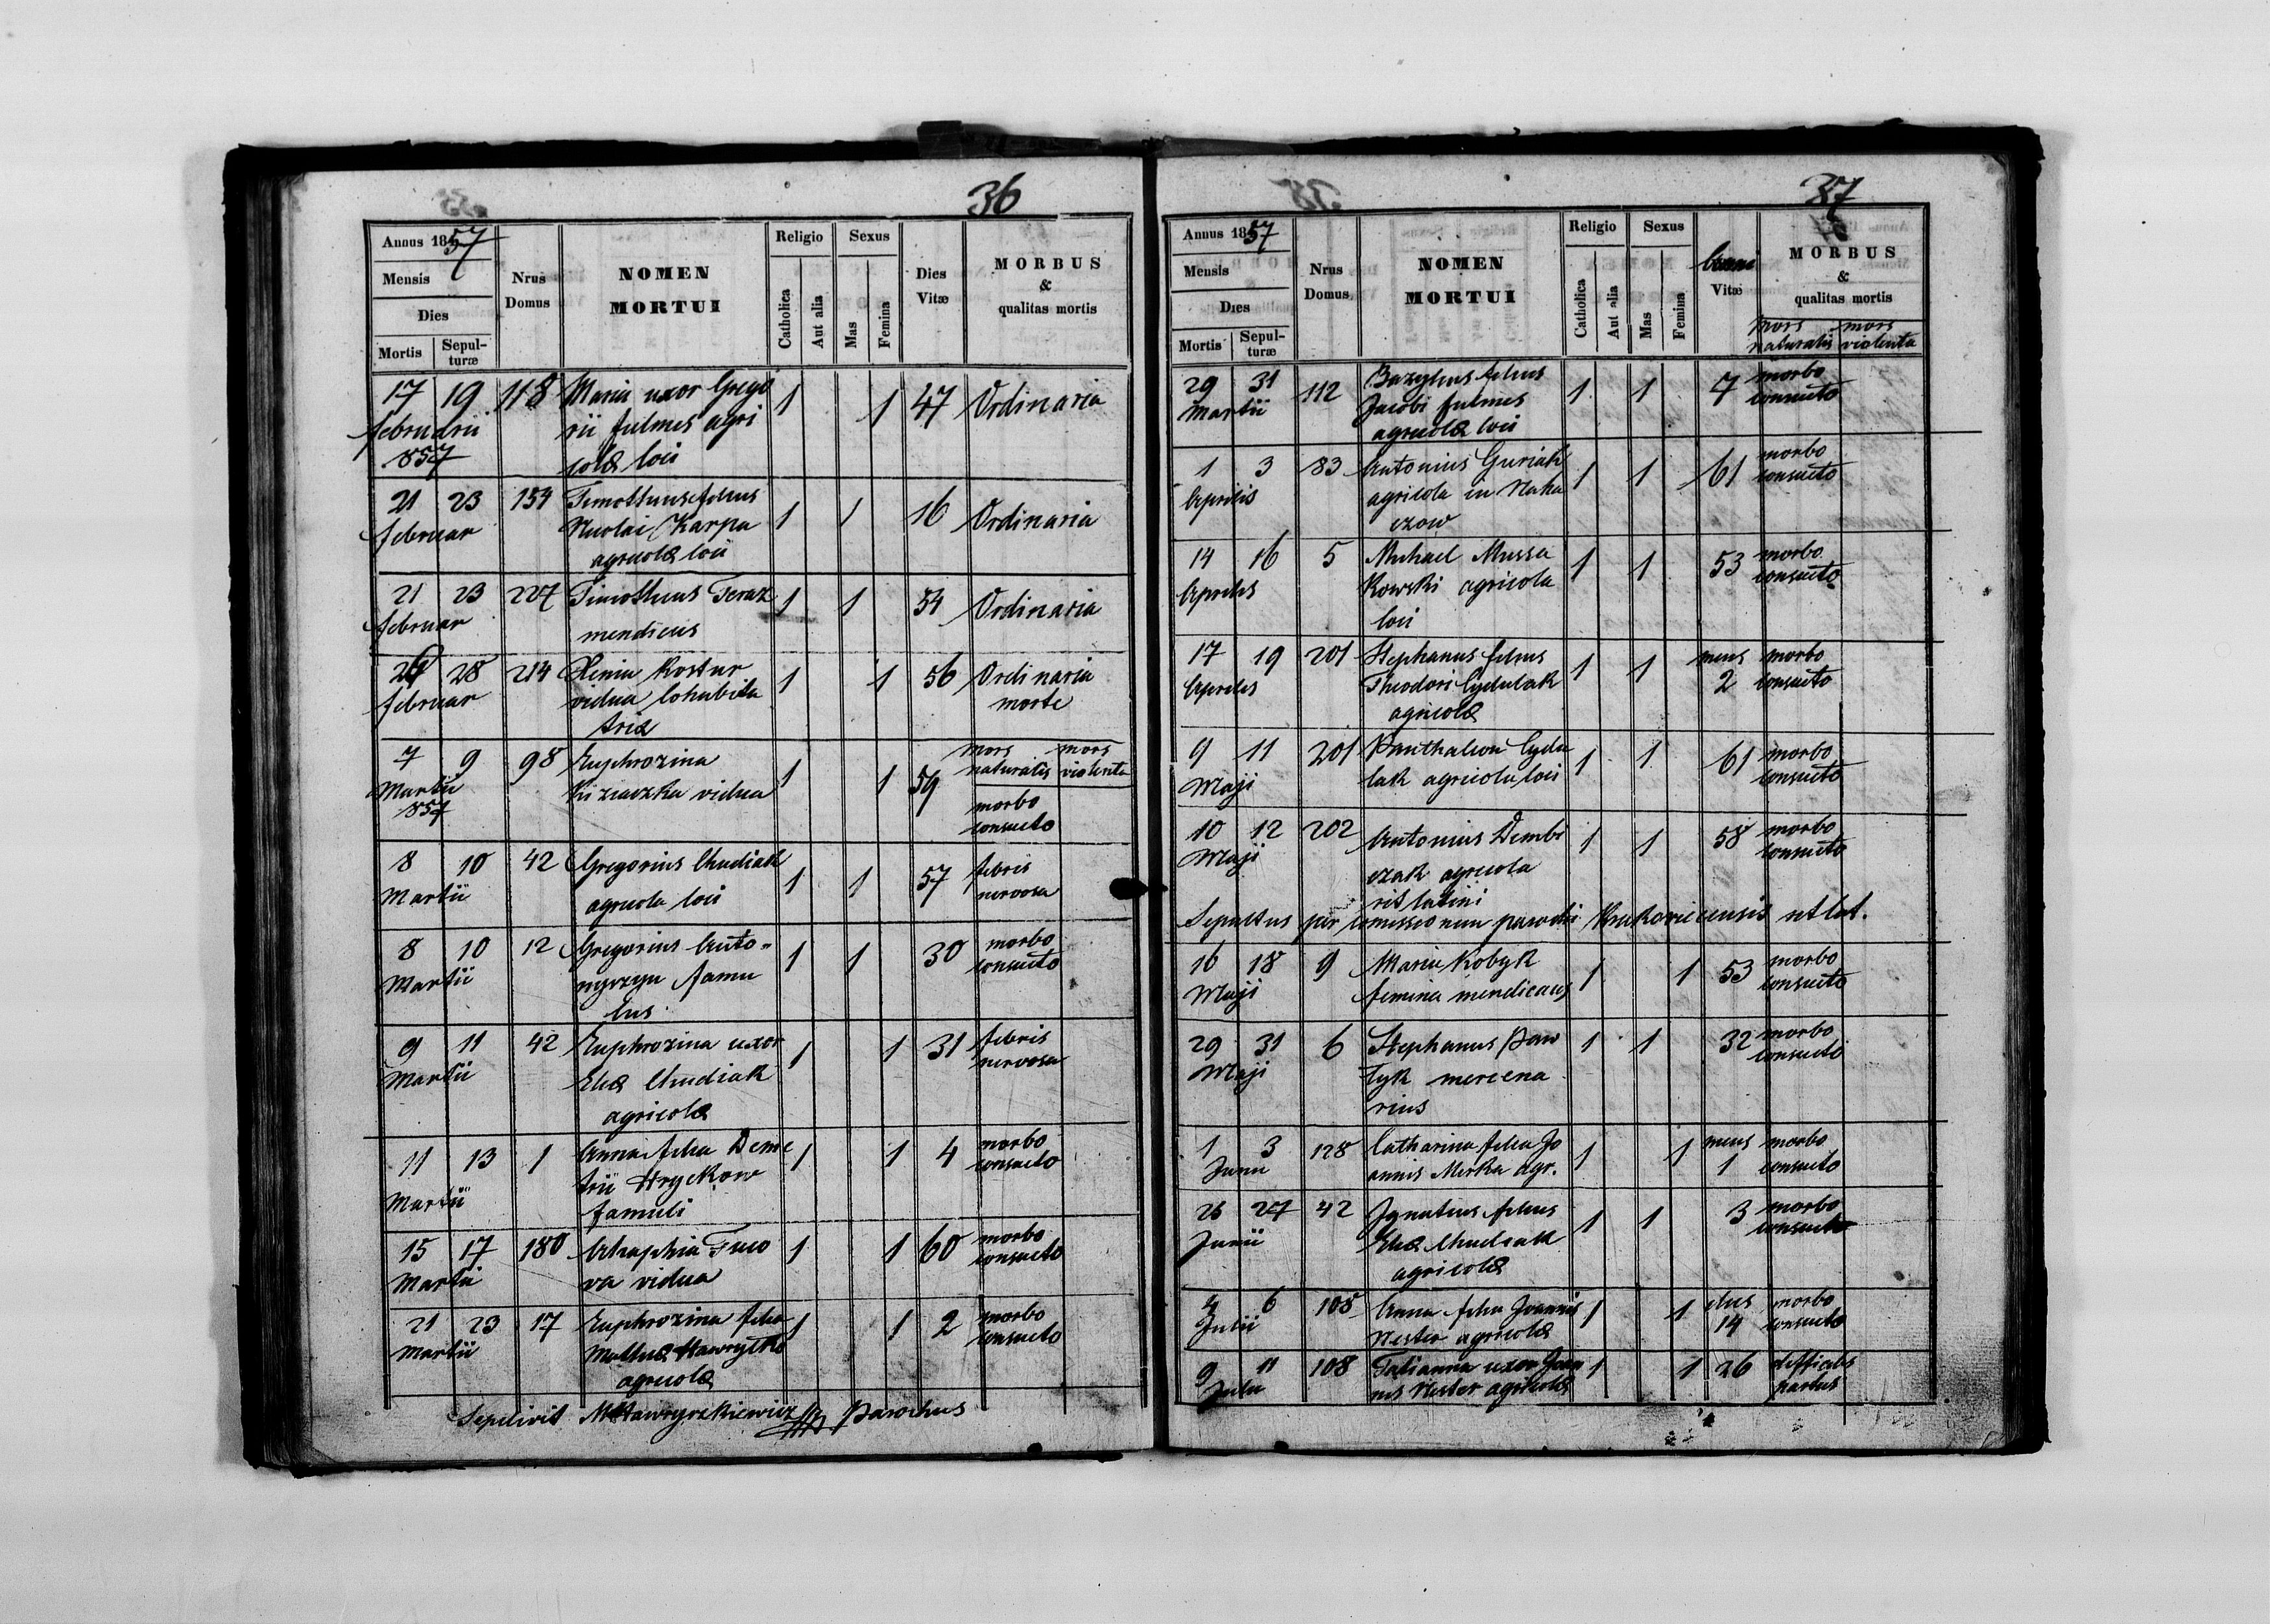 36
Annus 1857
Mensis
Dies
Mortis
Sepulturæ
Nrus Domus
NOMEN MORTUI
Religio
Catholica
Aut alia
Sexus
Mas
Femina
Dies Vitæ
MORBUS & qualitas mortis
17 19 118 Maria uxor Grego 1 1 47 Ordinaria
februarii rii fulmes agri
857 colæ loci
21 23 154 Timotheus filius 1 1 16 Ordinaria
februar Nicolai Karpa
agricolæ loci
21 23 227 Timotheus Teraz 1 1 54 Ordinaria
februar mendicus
28 214 Xenia Kostur 1 1 56 Ordinaria
februar vidua Cohabita morte
trix
mors naturalis mors violenta
7 9 98 Euphrozina 1 1 59 morbo
Martii vidua consueto
857
8 10 42 Gregorius Chudiak 1 1 57 febris
Martii agricola loci nervosa
8 10 12 Gregorius Anto- 1 1 30 morbo
Martii famu consueto
lus
9 11 42 Euphrozina uxor 1 1 31 febris
Martii Eliæ Chudiak nervosa
agricolæ
11 13 1 Anna filia Deme 1 1 4 morbo
Martii trii Hryckow consueto
famuli
15 17 180 Ahaphia 1 1 60 morbo
Martii va vidua consueto
21 23 17 Euphrozina filia 1 1 2 morbo
Martii Hawrylko consueto
agricolæ
Sepelivit MHawryszkiewicz Parochus
37
Annus 1857
Mensis
Dies
Mortis
Sepulturæ
Nrus Domus
NOMEN MORTUI
Religio
Catholica
Aut alia
Sexus
Mas
Femina
Anni Vitæ
MORBUS & qualitas mortis
mors naturalis mors violenta
29 31 112 Bazylius filius 1 1 7 morbo
Martii Jacobi fulmes consueto
agricolæ loci
1 3 83 Antonius Guriak 1 1 61 morbo
Aprilis agricola in Naha consueto
czow
14 16 5 Michael Mussa 1 1 53 morbo
Aprilis kowski agricola consueto
loci
17 19 201 Stephanus filius 1 1 mens morbo
Aprilis Theodori Cydulak 2 consueto
agricolæ
9 11 201 Panthaleon Cydu 1 1 61 morbo
Maji lak agricola loci consueto
10 12 202 Antonius Dembi 1 1 58 morbo
Maji czak agricola consueto
rit latini
Sepultus per comissionem parochi Krukoviecensis rit lat.
16 18 9 Maria Kobyk 1 1 53 morbo
Maji femina mendicans consueto
29 31 6 Stephanus Paw 1 1 32 morbo
Maji lyk mercena consueto
rius
1 3 128 Catharina filia Jo 1 1 mens morbo
Junii annis Mirka agr. 1 consueto
27 42 Ignatius filius 1 1 3 morbo
Junii Eliæ Chudiak consueto
agricolæ
4 6 108 Anna filia Joannis 1 1 dies morbo
Julii Nester agricolæ 14 consueto
9 11 108 Tatianna uxor Joan 1 1 26 difficilis
Julii nis Nester agricolæ partus